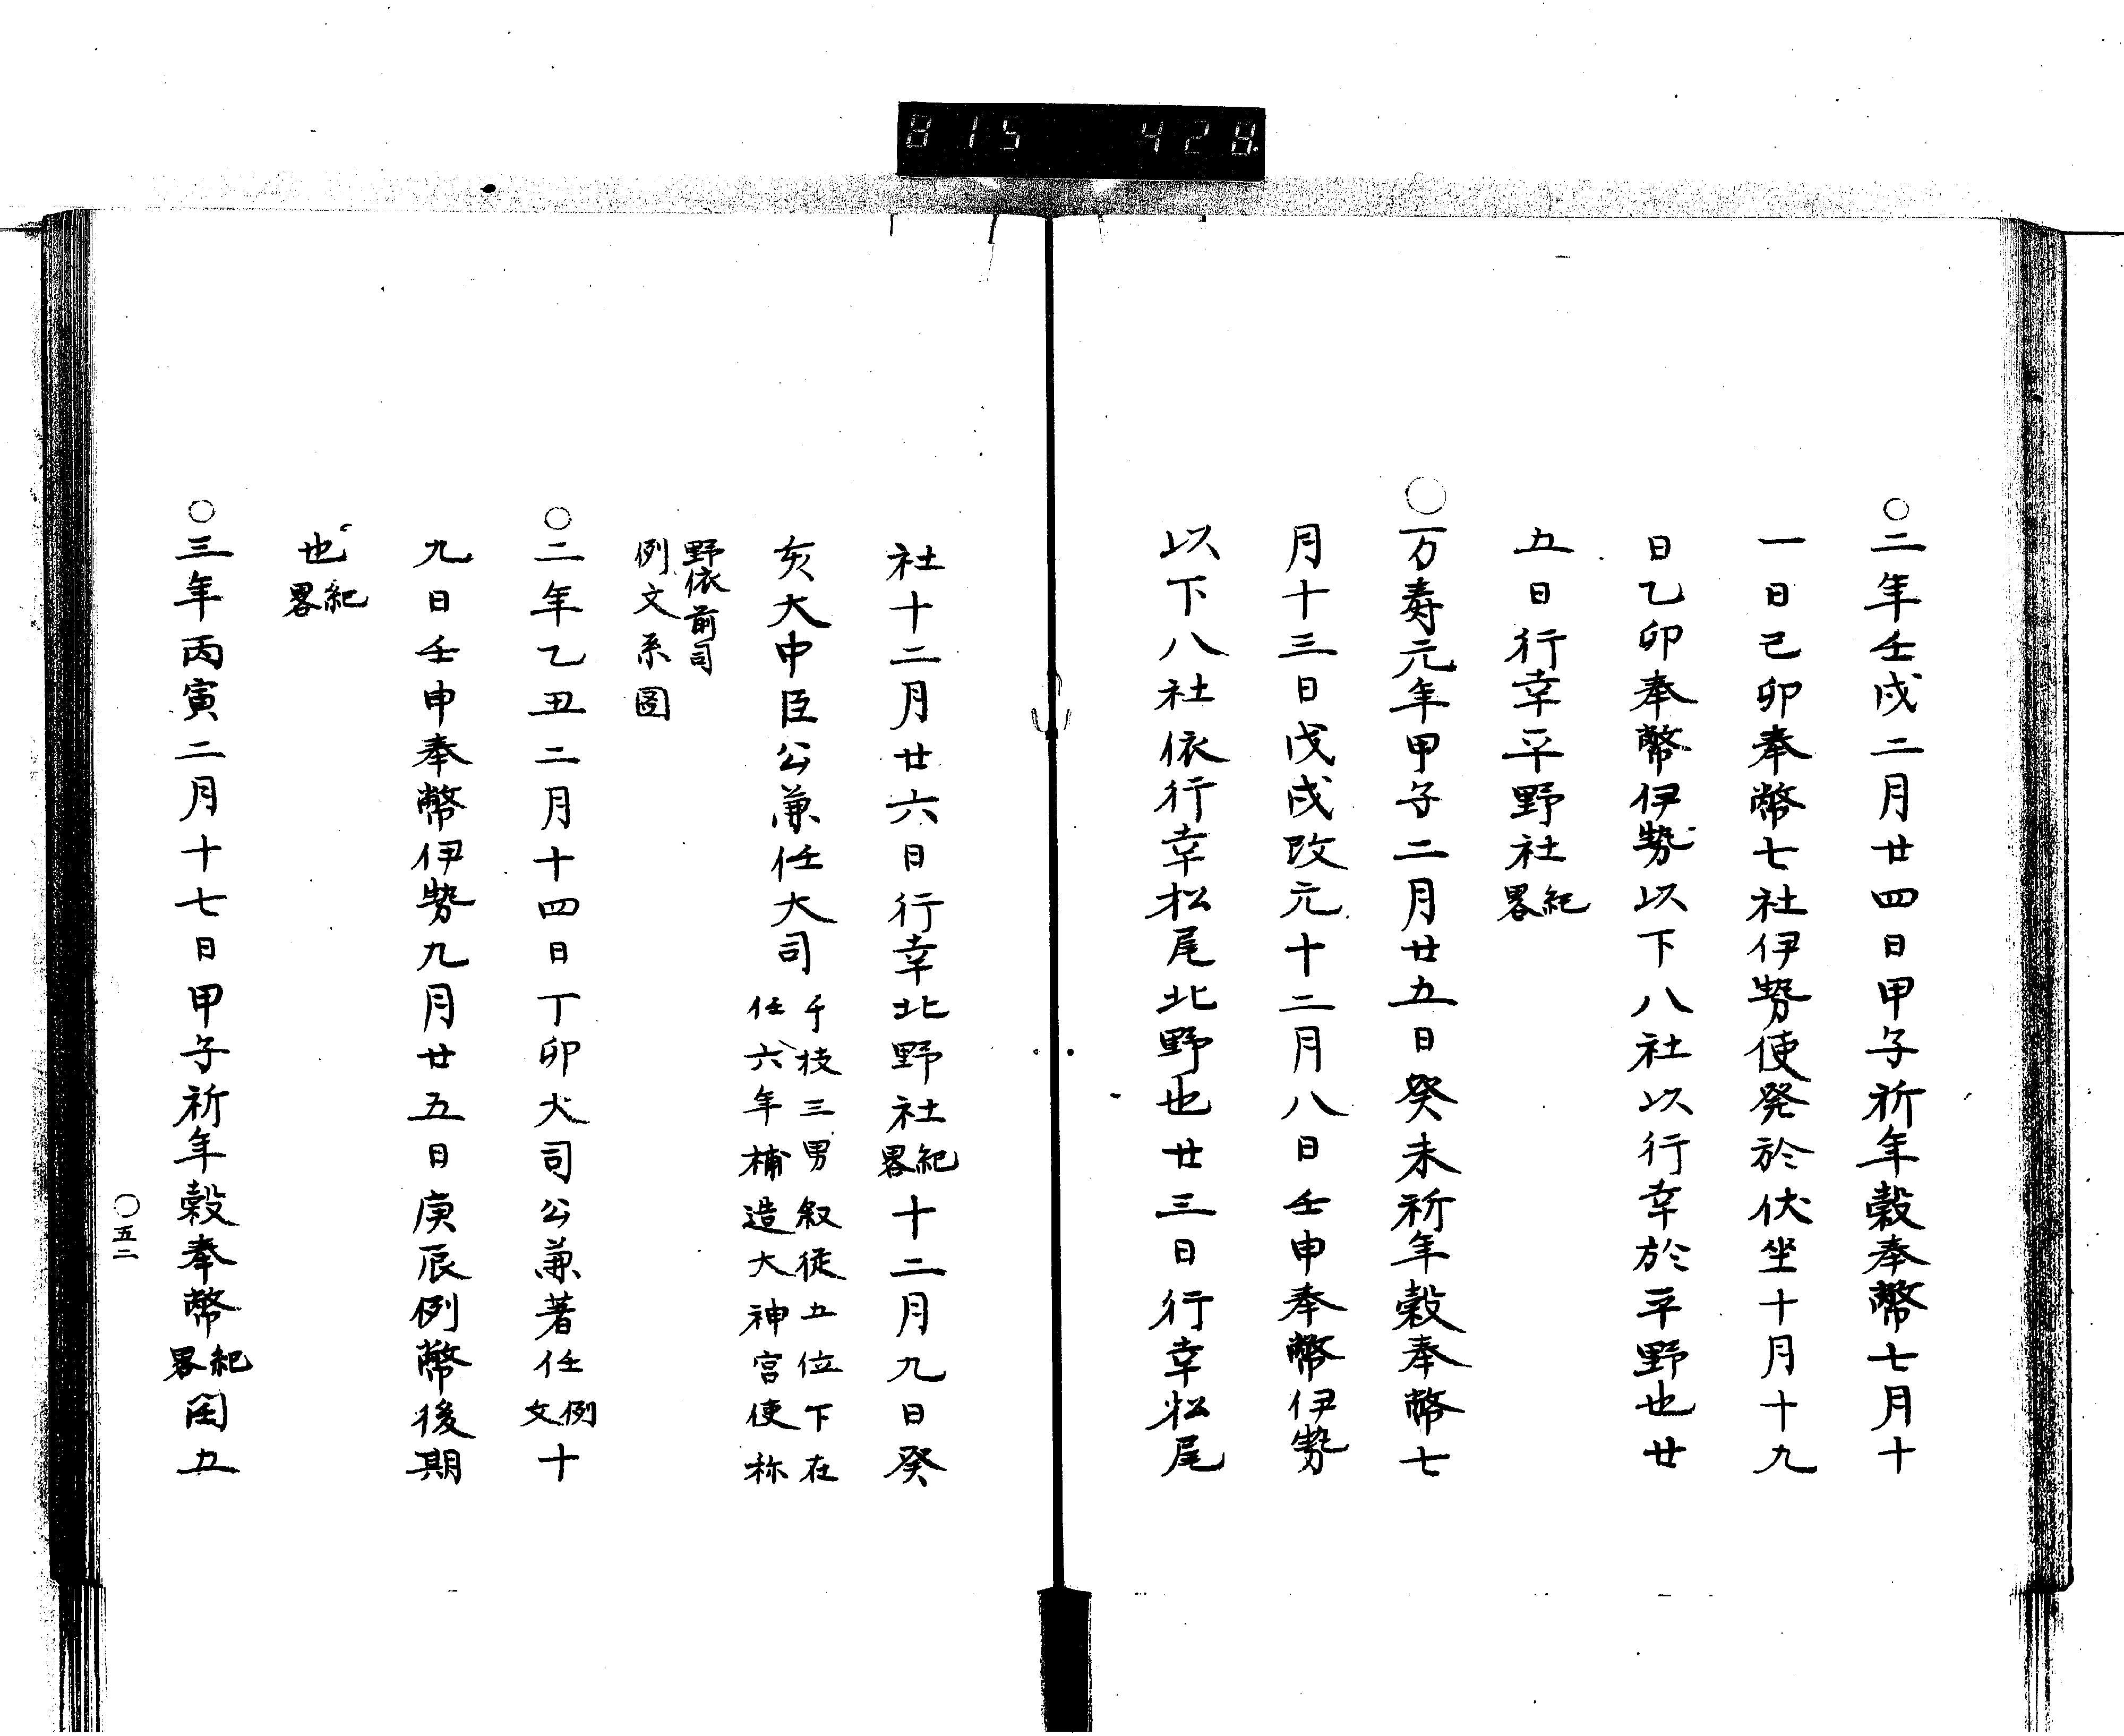 815 428
〇二年壬戌二月廿四日甲子祈年穀奉幣七月十
一日己卯奉幣七社伊勢使発於伏坐十月十九
日乙卯奉幣伊勢以下八社以行幸於平野也廿
五日行幸平野社紀畧
〇万寿元年甲子二月廿五日癸未祈年穀奉幣七
月十三日戊戌改元十二月八日壬申奉幣伊勢
以下八社依行幸松尾北野也廿三日行幸松尾
社十二月廿六日行幸北野社紀畧十二月九日癸
亥大中臣公兼任大司千枝三男叙従五位下在
任六年補造大神宮使称
野依前司
例文系図
〇二年乙丑二月十四日丁卯大司公兼著任例文十
九日壬申奉幣伊勢九月廿五日庚辰例幣後期
也紀畧
〇三年丙寅二月十七日甲子祈年穀奉幣紀畧閏五
〇五二